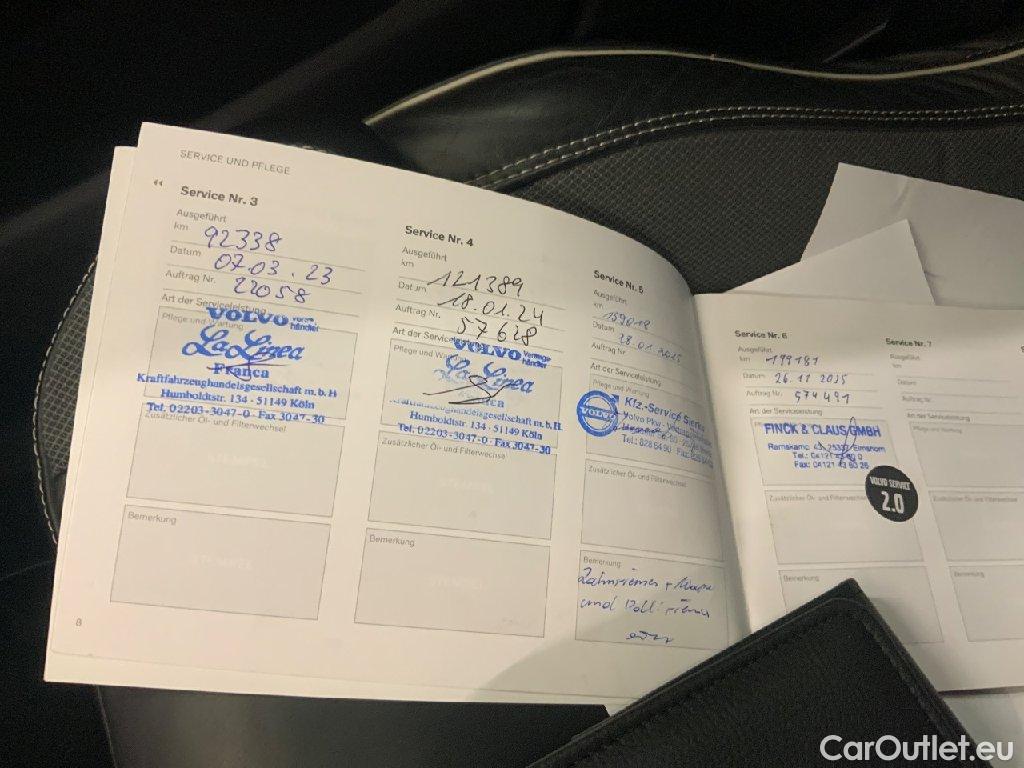 SERVICE UND PFLEGE
Service Nr. 3
Ausgeführt
km 92338
Datum 07.03.23
Auftrag Nr. 22058
Art der Serviceleistung
Pflege und Wartung
VOLVO Vertragshändler
La Linea
Franca
Kraftfahrzeughandelsgesellschaft m.b.H
Humboldtstr. 134 · 51149 Köln
Tel. 02203-3047-0 · Fax 3047-30
Zusätzlicher Öl- und Filterwechsel
STEMPEL
Bemerkung
STEMPEL
8
Service Nr. 4
Ausgeführt
km 121389
Datum 18.01.24
Auftrag Nr. 57628
Art der Serviceleistung
Pflege und Wartung
VOLVO Vertragshändler
La Linea
Kraftfahrzeughandelsgesellschaft m.b.H.
Humboldtstr. 134 · 51149 Köln
Tel. 02203-3047-0 · Fax 3047-30
Zusätzlicher Öl- und Filterwechsel
STEMPEL
Bemerkung
STEMPEL
Service Nr. 5
Ausgeführt
km
Datum
Auftrag Nr
Art der Serviceleistung
Pflege und Wartung
VOLVO
Kfz.-Service
Volvo Pkw
Zusätzlicher Öl- und Filterwechsel
Bemerkung
Zahnriemen +
und
Service Nr. 6
Ausgeführt
km 199181
Datum 26.11.2025
Auftrag Nr. 574491
Art der Serviceleistung
FINCK & CLAUS GMBH
Ramskamp 43, 25337 Elmshorn
Tel.: 04121
Fax: 04121
VOLVO SERVICE
2.0
Zusätzlicher Öl- und Filterwechsel
Bemerkung
Service Nr. 7
Ausgeführt
km
Datum
Auftrag Nr.
Art der Serviceleistung
Pflege und Wartung
Zusätzlicher Öl- und Filterwechsel
Bemerkung
CarOutlet.eu